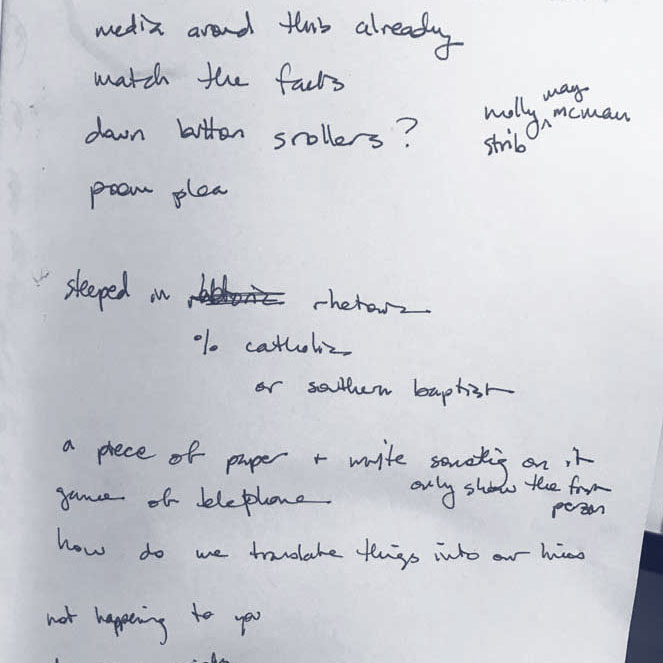 media around this already
match the facts
dawn button srollers?
molly way mcman
strib
poem plea
steeped in rhetoric
% catholic
or southern baptist
a piece of paper + write something on it
only show the first person
game of telephone
how do we translate things into our lives
not happening to you